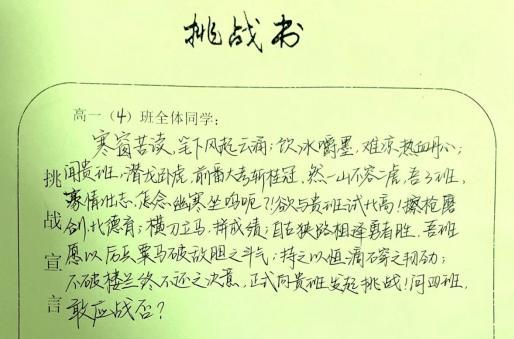 挑战书
高一（4）班全体同学：
寒窗苦读，笔下风起云涌；饮冰嚼墨，难凉热血丹心；
闻贵班，潜龙卧虎，前番大考斩桂冠，然一山不容二虎，吾3班，
豪情壮志，怎念幽寒坐呜呃？！欲与贵班试比高！擦枪磨
剑，比德育；横刀立马，拼成绩；自古狭路相逢勇者胜，吾班
愿以厉兵粟马破敌胆之斗气；持之以恒滴石穿之韧劲；
不破楼兰终不还之决意，正式向贵班发起挑战！问四班，
敢应战否？
挑战宣言